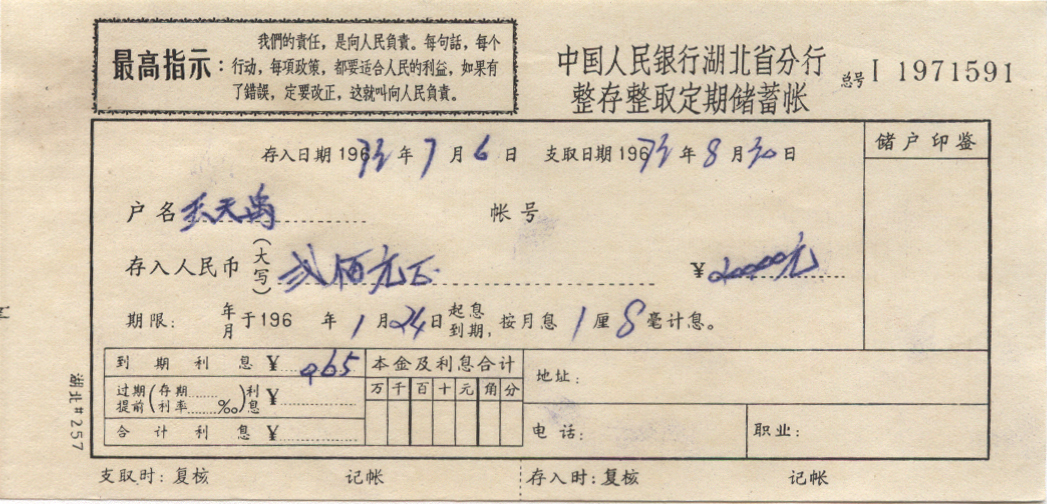 最高指示：
我們的責任，是向人民負責。每句話，每个
行动，每項政策，都要适合人民的利益，如果有
了錯誤，定要改正，这就叫向人民負責。
中国人民银行湖北省分行
整存整取定期储蓄帐
总号 I 1971591
存入日期 196 年 7 月 6 日 支取日期 196 年 8 月 30 日
储户印鉴
户名 天禹 帐号
存入人民币(大写) 贰佰元正 ¥ 20000元
期限： 年月于196 年 1 月 24 日起息到期，按月息 1 厘 8 毫计息。
到期利息 ¥ 0.65
本金及利息合计
万 千 百 十 元 角 分
过期提前(存期......利率......‰)利息 ¥
合计利息 ¥
地址：
电话：
职业：
湖北#257
支取时：复核 记帐 存入时：复核 记帐